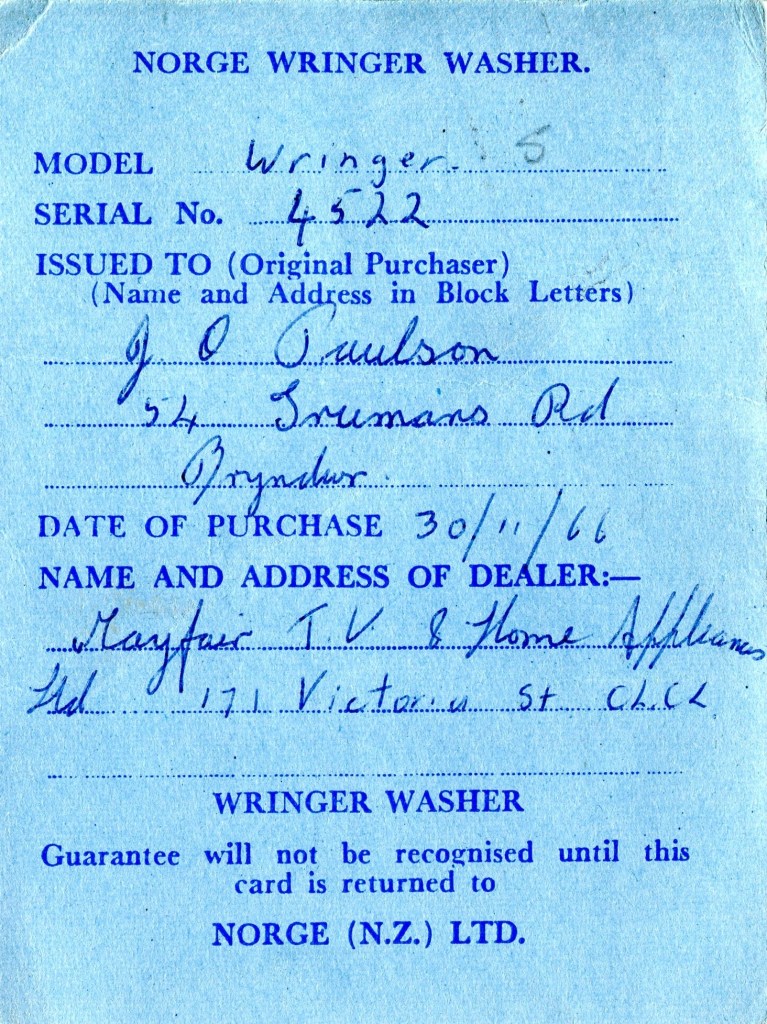 NORGE WRINGER WASHER.
MODEL Wringer. S
SERIAL No. 4522
ISSUED TO (Original Purchaser)
(Name and Address in Block Letters)
J O Paulson
54 Trumans Rd
Bryndwr.
DATE OF PURCHASE 30/11/66
NAME AND ADDRESS OF DEALER:—
Mayfair T.V. & Home Appliances
Ltd 171 Victoria St
WRINGER WASHER
Guarantee will not be recognised until this
card is returned to
NORGE (N.Z.) LTD.